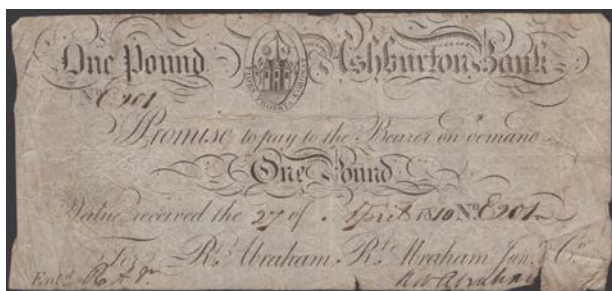 One Pound Ashburton Bank
FIDES PROBITAS CORONAT
No E201
I Promise to pay to the Bearer on demand
One Pound
Value received the 27 of April 1810 No. E201
For Rt. Abraham, Rt. Abraham Junr. & Co.
Entd. R A Jr Rt Abraham